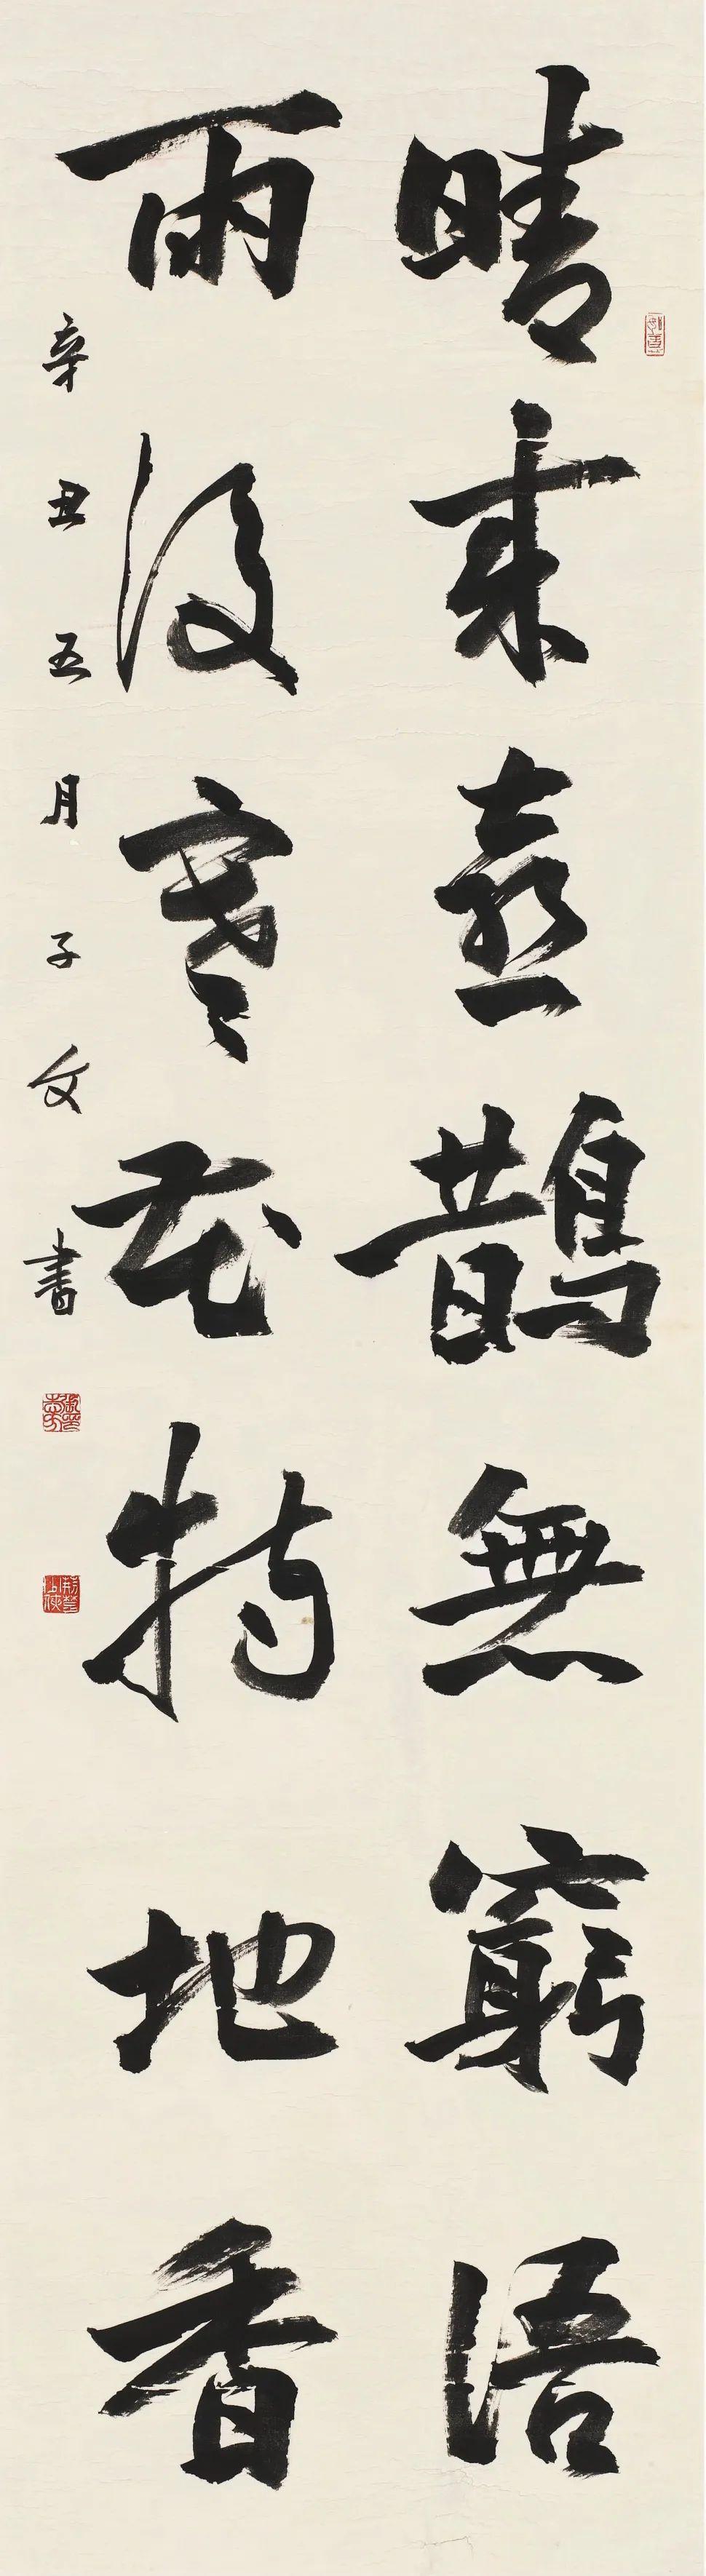 晴來喜鵲無窮語
雨後寒花特地香
辛丑五月子文書